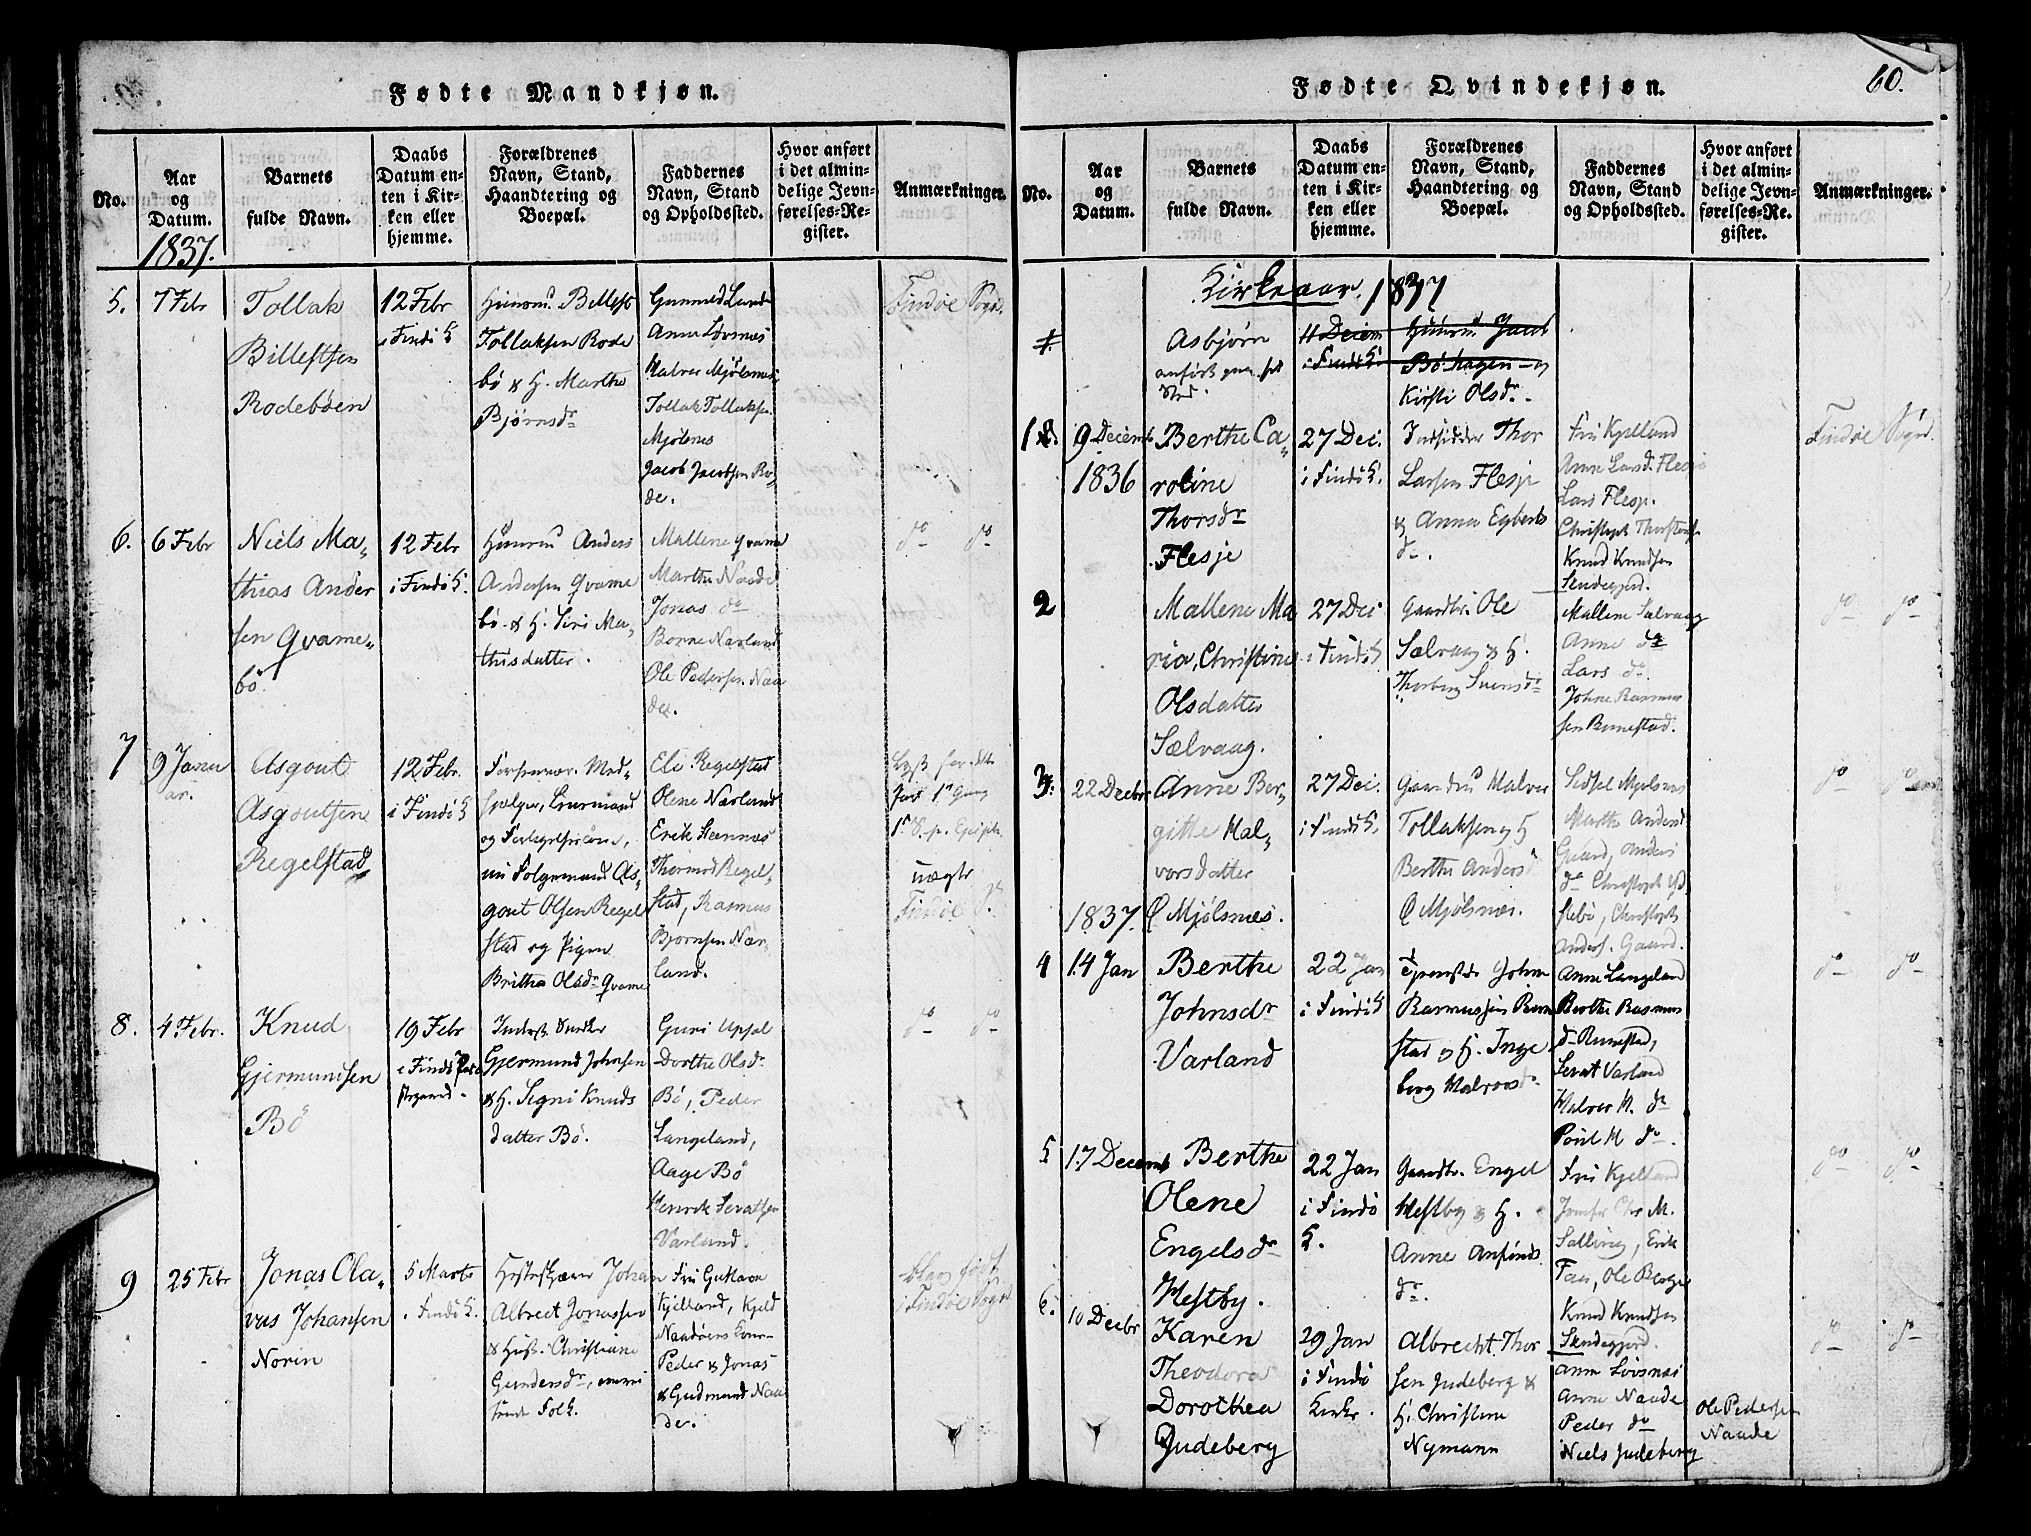 Fødte Mandkjøn.
No.
Aar
og
Datum.
1837.
Barnets
fulde Navn.
Daabs
Datum en-
ten i Kir-
ken eller
hjemme.
Forældrenes
Navn, Stand,
Haandtering og
Boepæl.
Faddernes
Navn, Stand
og Opholdssted.
Hvor anført
i det almin-
delige Jevn-
førelses-Re-
gister.
Anmærkninger.
5.
7 Febr
Tollak
Billestsen
Rodebøen
12 Febr
i Findö K
Tollaksen Rode
bö & H. Marthe
Bjørnsdr
Gunnild Lunde
Anna Løvsnæs
Halvor Mjölsnæs
Tollak Tollaksen
Mjölsnes
Jacob Jacobsen Ro-
de.
Findöe Sogn.
6.
6 Febr
Niels Ma-
thias Ander
sen Qvame-
bö.
12 Febr
i Findö K.
Anders
Andersen Qvame
bö & H. Siri Ma-
thisdatter.
Mallene Qvame
Marthe Naade
Jonas do
Borne Narland
Ole Pedersen Naa
de.
do do
7
9 Janu
ar.
Asgout
Asgoutsen
Regelstad
12 Febr.
i Findö K
og
Folgemand As-
gout Olsen Regel
stad og Pigen
Britha Olsdr Qvame
Eli Regelstad
Olene Nærland
Erik Stennæs
Thormod Regel-
stad, Rasmus
Bjørnsen Nær-
land.
uægte
Findöe do
8.
4 Febr.
Knud
Gjermundsen
Bö
19 Febr
i Findö Præ
stegaard.
Gjermund Johnsen
& H. Segni Knuds
datter Bö.
Guri Upsal
Dorthe Olsdr
Bö, Peder
Langeland,
Aage Bö
Henrik Sevatsen
Varland.
do do
9
25 Febr
Jonas Ola-
vus Johansen
Norin
5 Marts
i Findö K.
Johan
Albrect Jonassen
& Christiane
Gundersdr,
Folk.
Fru Gustava
Kjelland, Kjeld
Peder & Jonas
& Gudmund Naa
de.
født
i Findöe Sogn
Fødte Qvindekjøn.
60.
No.
Aar
og
Datum.
Barnets
fulde Navn.
Daabs
Datum en-
ten i Kir-
ken eller
hjemme.
Forældrenes
Navn, Stand,
Haandtering og
Boepæl.
Faddernes
Navn, Stand
og Opholdssted.
Hvor anført
i det almin-
delige Jevn-
førelses-Re-
gister.
Anmærkninger.
Kirkeaar 1837
Asbjørn
11 Decem
i Findö K.
Böhagen og
Kirsti Olsdr.
1
9 Decemb
1836
Berthe Ca-
roline
Thorsdr
Flesje
27 Dec.
i Findö K.
Indsidder Thor
Larsen Flesje
& Anna Egberts
dr.
Fru Kjelland
Anne Larsdr Flesje
Lars Flesje.
Christoph Thorstens
Knud Knudsen
Skudegjerd.
Findöe Sogn.
2
Mallene Ma
ria, Christine
Olsdatter
Sælvaag.
27 Dec
i Findö K
Gaardbr. Ole
Sælvaag & H.
Thorbrg Svensdr
Mallene Sælvaag
Anne do
Lars do
Johne Rasmus
sen Runestad.
do do
3.
22 Decbr
Anne Ber-
gitte Hal-
vorsdatter
Mjölsnæs.
27 Dec.
i Findö K.
Halvor
Tollaksen & H
Berthe Andersd
Mjölsnæs.
Sidsel Mjølsnes
Marthe Andersd
Gaard, Anders
do Christoph
stebö, Christoph
Anders. Gaard.
do do
1837.
4
14 Jan
Berthe
Johnsdr
Varland
22 Jan
i Findö K
Johne
Rasmussen Rune
stad & H. Inge
borg Halvorsdr
Anne Langeland
Berthe Rasmus
dr Runestad,
Sevat Varland
Halvor H. do
Poul H do.
do do
5
17 Decemb
Berthe
Olene
Engelsdr
Hestby.
22 Jan
i Findö
K.
Gaardbr. Engel
Hestby & H.
Anne Anfinds
dr.
Fru Kjelland
Salling, Erik
Fau, Ole Berge
Knud Knudsen
Skudegjerd.
do do
6.
10 Decbr
Karen
Theodora
Dorothea
Judeberg
29 Jan
i Findö
Kirke.
Albrecht Thor
sen Judeberg &
H. Christine
Nymann
Anne Lövsnæs
Anne Naade
Peder do
Niels Judeberg
Ole Pedersen
Naade
do do